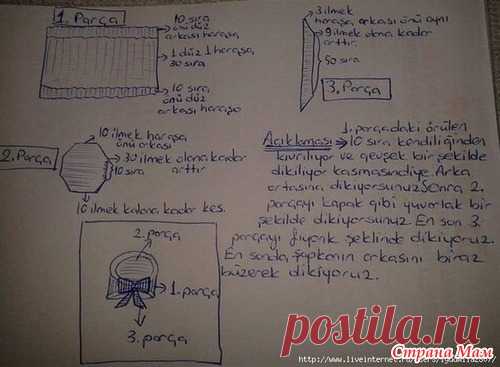 1. Parça
10 sıra
önü düz
arkası haraşa
1 düz 1 haraşa
30 sıra
10 sıra
önü düz
arkası haraşo
3 ilmek
haraşa, arkası önü aynı
9 ilmek olana kadar
arttır.
50 sıra
3. Parça
2. Parça
10 ilmek haraşa,
önü arkası
30 ilmek olana kadar
arttır
10 sıra
10 ilmek kalana kadar kes.
Açıklaması → 1. parçadaki örülen
10 sıra kendiliğinden
kıvrılıyor ve gevşek bir şekilde
dikiliyor kasmasın diye. Arka
ortasına dikiyorsunuz. Sonra 2.
parçayı kapak gibi yuvarlak bir
şekilde dikiyorsunuz. En son 3.
parçayı fiyonk şeklinde dikiyoruz.
En sonda şapkanın arkasını biraz
büzerek dikiyoruz.
2. parça
1. parça
3. parça
postila.ru
Страна Мам